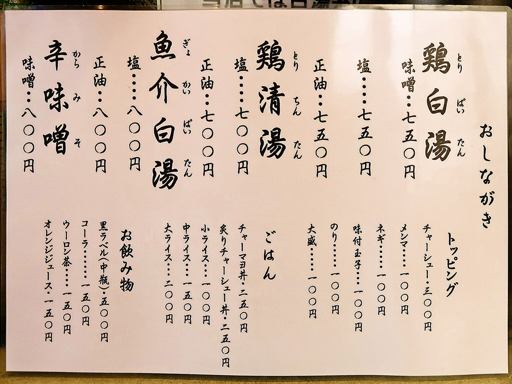 当店では白湯
おしながき
鶏白湯
とりぱいたん
味噌・・七五〇円
塩・・・・七五〇円
正油・・七五〇円
鶏清湯
とりちんたん
塩・・・・七〇〇円
正油・・七〇〇円
魚介白湯
ぎょかいぱいたん
塩・・・・八〇〇円
正油・・八〇〇円
辛味噌
からみそ
味噌・・八〇〇円
トッピング
チャーシュー・三〇〇円
メンマ・・・一〇〇円
ネギ・・・・一〇〇円
味付玉子・・・一〇〇円
のり・・・・一〇〇円
大盛・・・・一〇〇円
ごはん
チャーマヨ丼・二五〇円
炙りチャーシュー丼・二五〇円
小ライス・・・一〇〇円
中ライス・・・一五〇円
大ライス・・・二〇〇円
お飲み物
黒ラベル(中瓶)・五〇〇円
コーラ・・・・・一五〇円
ウーロン茶・・・・一五〇円
オレンジジュース・一五〇円